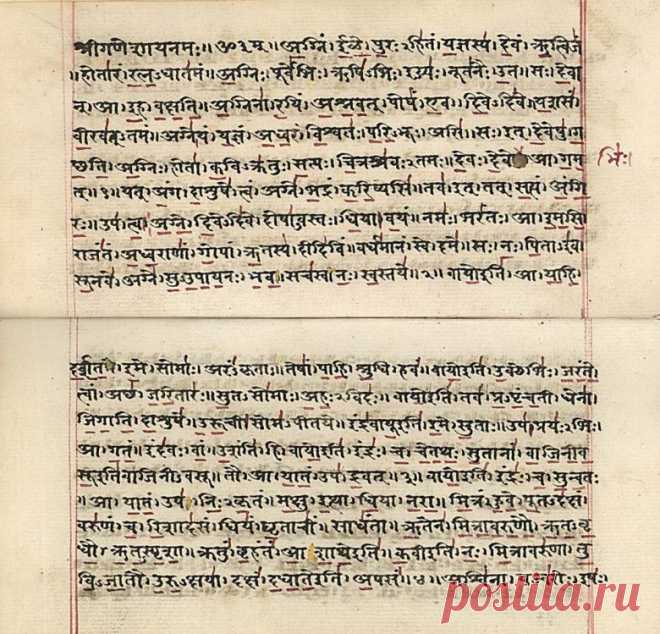 श्रीगणेशायनमः॥ ॐ३म्॥ अग्निं। ईळे। पुरःऽहितं। यज्ञस्य। देवं। ऋत्विजं
॥होतारं। रत्नऽधातमं॥ अग्निः। पूर्वेभिः। ऋषिऽभिः। ईड्यः। नूतनैः। उत। सः। देवा
न्। आ। इह। वक्षति॥ अग्निना। रयिं। अश्नवत्। पोषं। एव। दिवेऽदिवे। यशसं
वीरवत्ऽतमं॥ अग्ने। यं। यज्ञं। अध्वरं। विश्वतः। परिऽभूः। असि। सः। इत्। देवेषु। ग
च्छति॥ अग्निः। होता। कविऽक्रतुः। सत्यः। चित्रश्रवःऽतमः। देवः। देवे। आ। गम भिः।
त्॥१॥ यत्। अंग। दाशुषे। त्वं। अग्ने। भद्रं। करिष्यसि। तव। इत्। तत्। सत्यं। अंगि
रः॥ उप। त्वा। अग्ने। दिवेऽदिवे। दोषाऽवस्तः। धिया। वयं। नमः। भरंतः। आ। इमसि
राजंतं। अध्वराणां। गोपां। ऋतस्य। दीदिविं। वर्धमानं। स्वे। दमे॥ सः। नः। पिताऽइव
सूनवे। अग्ने। सुऽउपायनः। भव। सचस्व। नः। स्वस्तये॥२॥ वायो इति। आ। याहि।
दर्शत। इमे। सोमाः। अरंऽकृताः। तेषां। पाहि। श्रुधि। हवं॥ वायो इति। उक्थेभिः। जरंते
त्वां। अच्छ। जरितारः। सुतऽसोमाः। अहःऽविदः॥ वायो इति। तव। प्रऽपृंचती। धेना
जिगाति। दाशुषे। उरूची। सोमऽपीतये॥ इंद्रवायू इति। इमे। सुताः। उप। प्रयःऽभिः।
आ। गतं। इंदवः। वां। उशंति। हि॥ वायो इति। इंद्रः। च। चेतथः। सुतानां। वाजिनीव
सू इति वाजिनीऽवसू। तौ। आ। यातं। उप। द्रवत्॥३॥ वायो इति। इंद्रः। च। सुन्वतः
॥ आ। यातं। उप। निःऽकृतं। मक्षु। इत्था। धिया। नरा॥ मित्रं। हुवे। पूतऽदक्षं
वरुणं। च। रिशादसं। धियं। घृताचीं। साधंता॥ ऋतेन। मित्रावरुणौ। ऋतऽवृ
धौ। ऋतऽस्पृशा। क्रतुं। बृहंतं। आशाथे इति॥ कवी इति। नः। मित्रावरुणा। तु
विऽजातौ। उरुऽक्षया। दक्षं। दधाते इति। अपसं॥४॥ अश्विना। यज्वरीः। इषः।
posila.ru